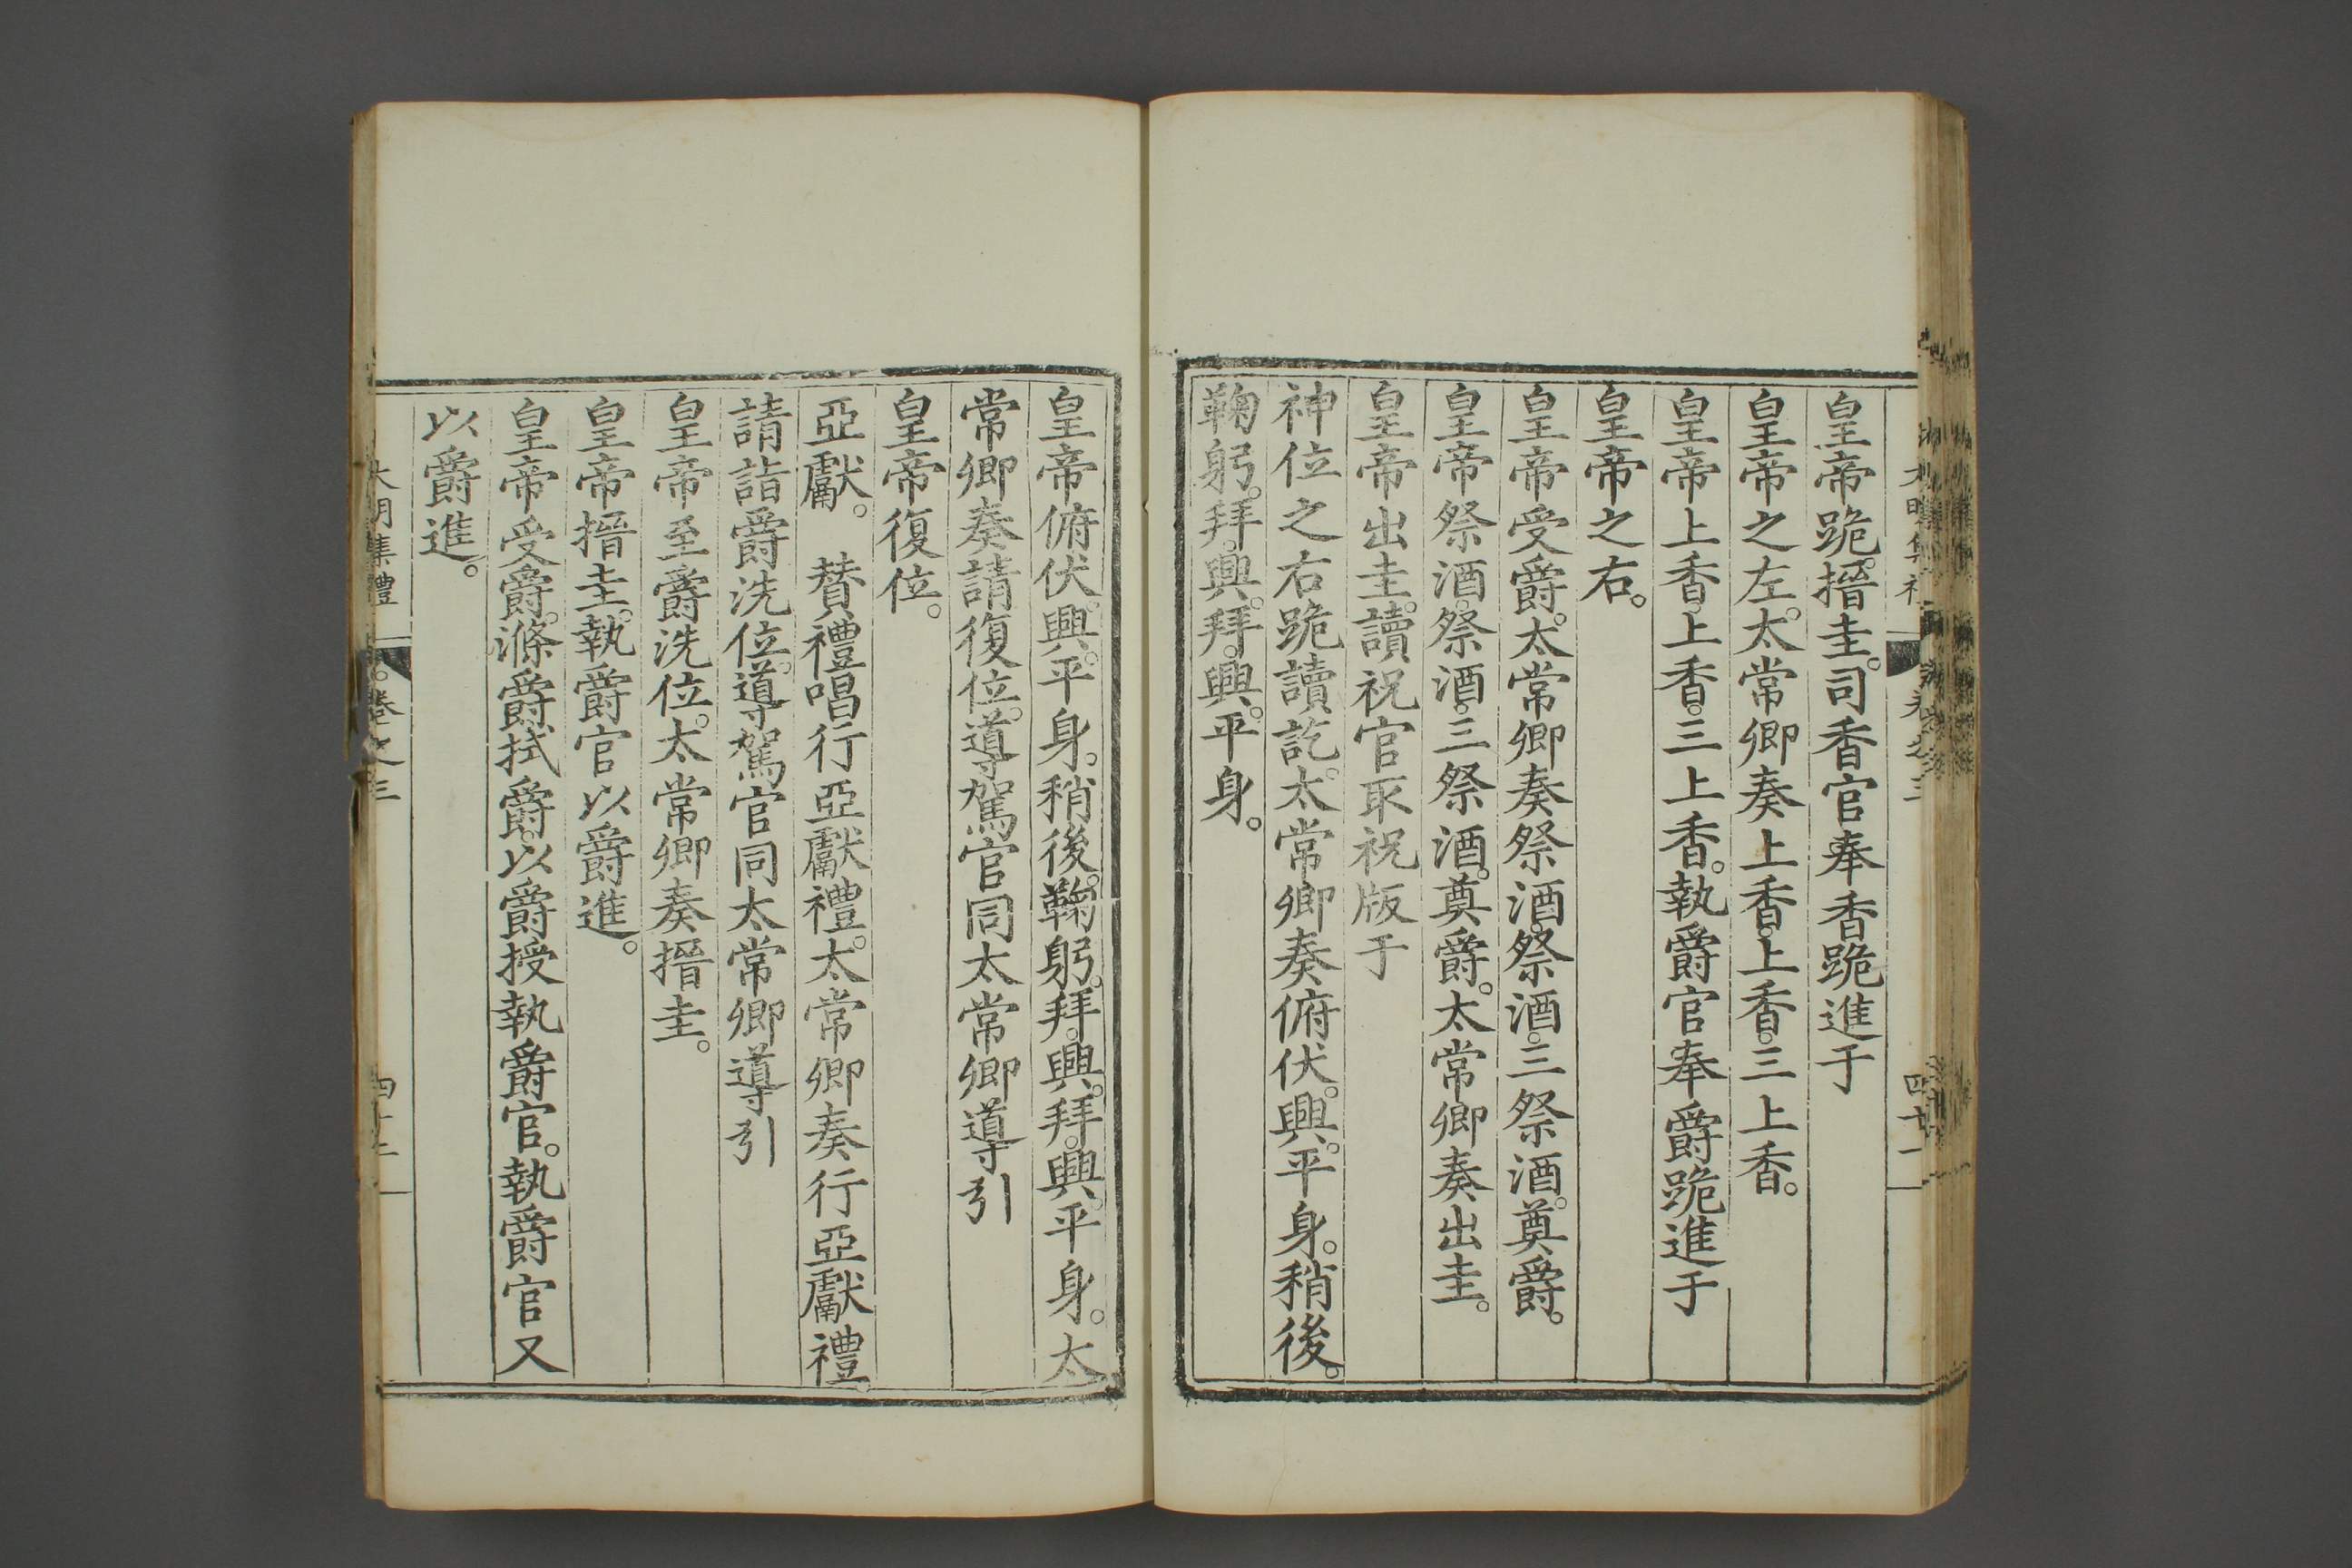 皇帝跪。搢圭。司香官奉香跪進于
皇帝之左。太常卿奏上香。上香。三上香。
皇帝上香。上香。三上香。執爵官奉爵跪進于
皇帝之右。
皇帝受爵。太常卿奏祭酒。祭酒。三祭酒。奠爵。
皇帝祭酒。祭酒。三祭酒。奠爵。太常卿奏出圭。
皇帝出圭。讀祝官取祝版于
神位之右跪讀訖。太常卿奏俯伏。興。平身。稍後。
鞠躬。拜。興。拜。興。平身。
皇帝俯伏。興。平身。稍後。鞠躬。拜。興。拜。興。平身。太
常卿奏請復位。導駕官同太常卿導引
皇帝復位。
亞獻。 贊禮唱行亞獻禮。太常卿奏行亞獻禮。
請詣爵洗位。導駕官同太常卿導引
皇帝至爵洗位。太常卿奏搢圭。
皇帝搢圭。執爵官以爵進。
皇帝受爵。滌爵拭爵。以爵授執爵官。執爵官又
以爵進。
大明集禮 卷之三